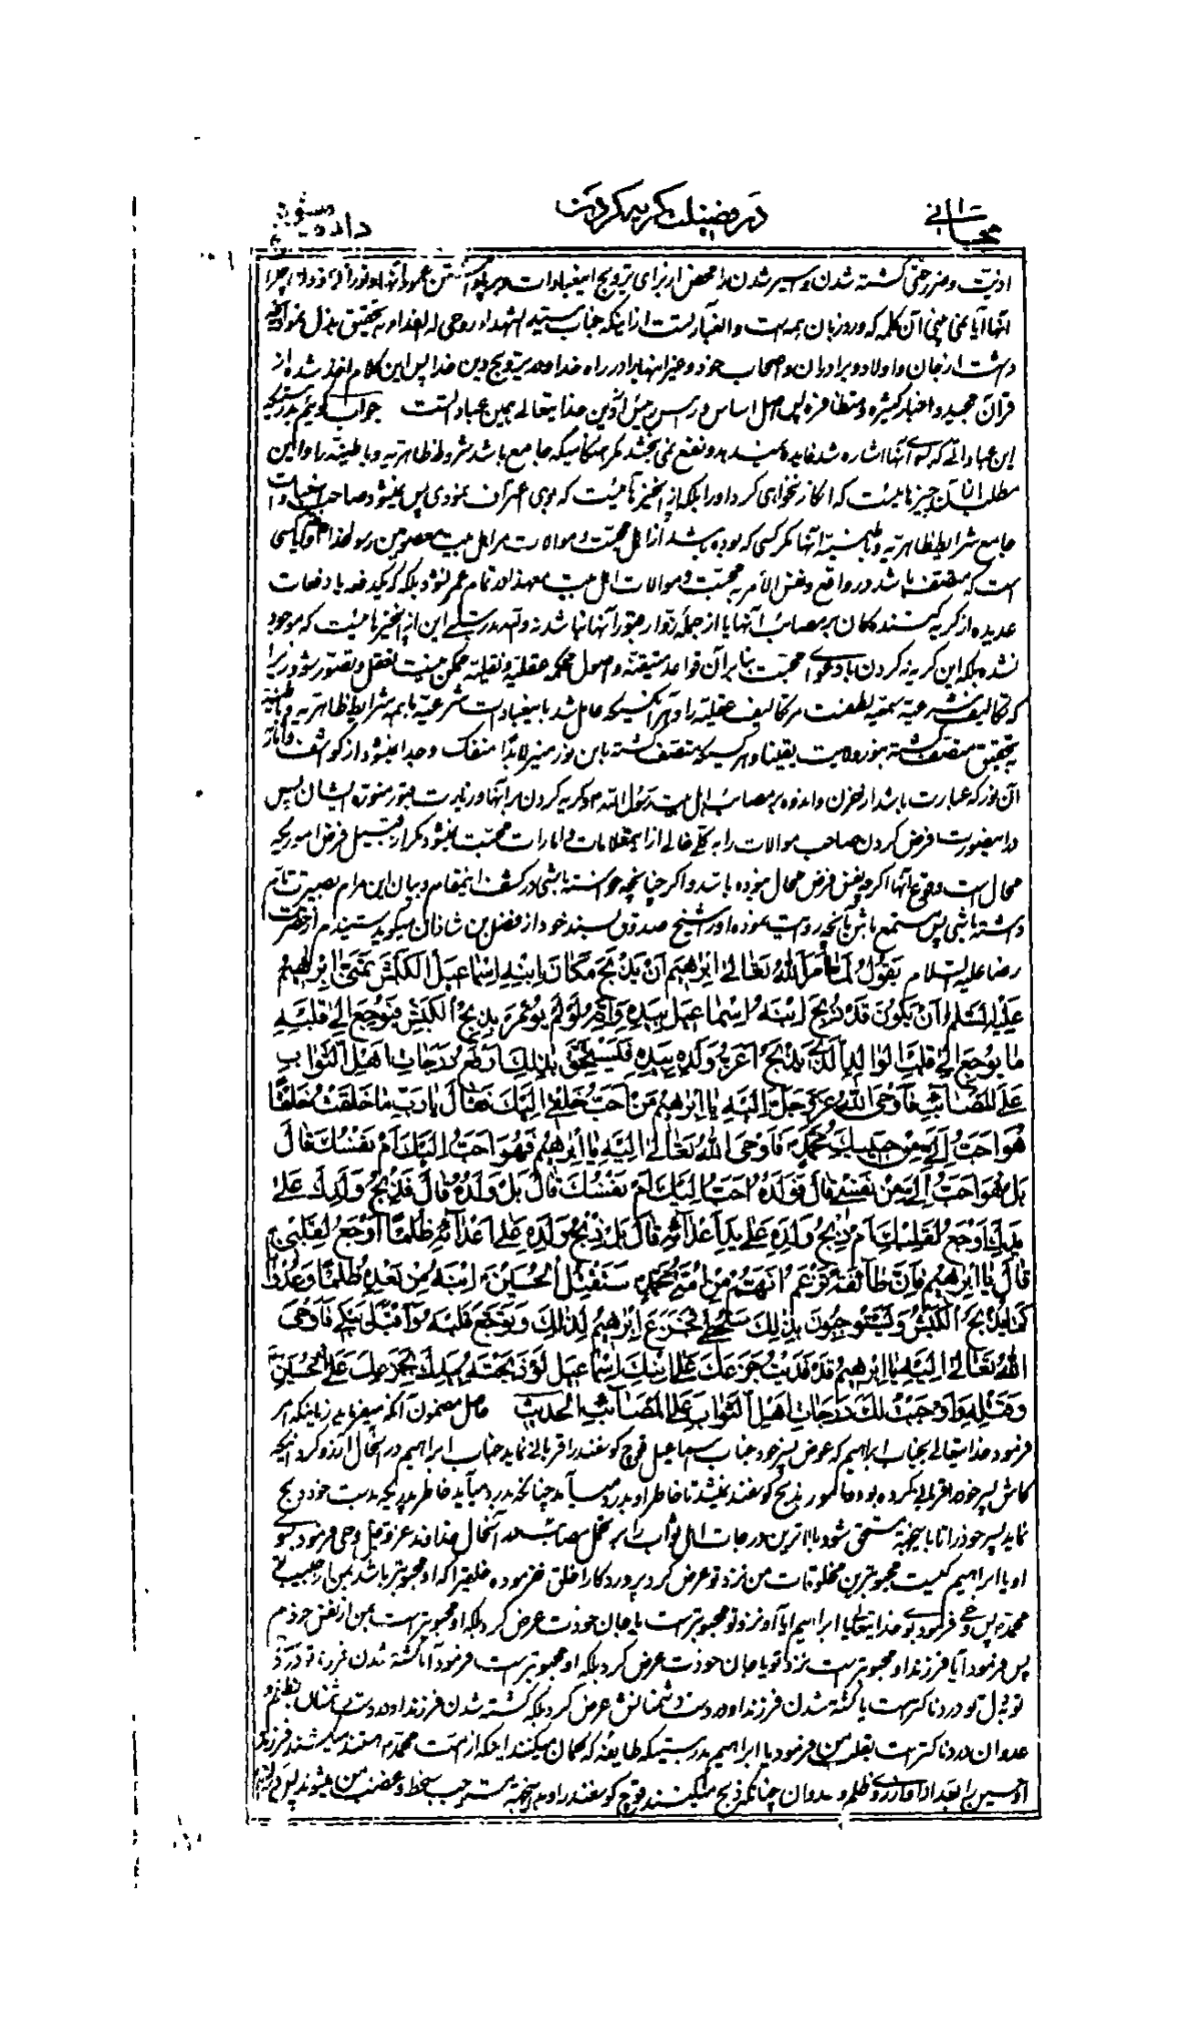 در فضیلت گریه کردن
اذیت و ضرر حتی کشته شدن و اسیر شدن را محض از برای ترویج این عبادات و برپا داشتن عمود آنها و نور
آنها آیا نمی بینی آن کلمه که ورد زبان همه است و العبارتست از اینکه جناب سید الشهداء روحی له الفداء بتحقیق بذل نمود آنچه
داشت از جان و اولاد و برادران و اصحاب خود و غیر اینها را در راه خدا و در ترویج دین خدا پس این کلام اخذ شده از
قرآن مجید و اخبار کثیره و متظافره پس اصل اساس و رأس رئیس دین خدایتعالی همین عبادا تست جواب گویم بدرستیکه
این عباداتی که بسوی آنها اشاره شد فایده نمیدهد و نفع نمی بخشد مگر هنگامیکه جامع باشد شروط ظاهریه و باطنیه را و این
مطلب از آن چیزهائیست که انکار نخواهی کرد او را بلکه از آنچیزهائیست که بوی اعتراف نمودی پس نمیشود صاحب این عبادات
جامع شرایط ظاهریه و باطنیه آنها مگر کسی که بوده باشد از اهل محبت و موالات مر اهل بیت معصومین رسولخدا و آیا کسی
است که متصف باشد در واقع و نفس الأمر به محبت و موالات اهل بیت معهذا در تمام عمر نشود بلکه که یکدفعه یا دفعات
عدیده از گریه کنندهگان بر مصائب آنها یا از جمله زوار قبور آنها نباشد نه و اقعه بدرستی این از آنچیزهائیست که موجود
نشده بلکه این گریه نکردن با دعوای محبت بنا بر آن قواعد متیقنه و اصول محکمه عقلیه و نقلیه ممکن نیست تعقل و تصور شود زیرا
که تکالیف شرعیه سمعیه لطفست مر تکالیف عقلیه را و هر آنکسیکه عامل شد باینعبادات شرعیه با همه شرایط ظاهریه و باطنیه
بتحقیق متصف گشته بنور ولایت یقینا و هر کسیکه متصف گشته باین نور منیر لابدا منفک و جدا نمیشود از کواشف و آثار
آن نور که عبارت باشد از حزن و اندوه بر مصائب اهل بیت رسول الله و گریه کردن بر آنها و زیارت قبور منوره ایشان پس
در اینصورت فرض کردن صاحب موالات را به کلی خالی از این علامات و امارات محبت نمیشود مگر از قبیل فرض اموریکه
محال است وقوع آنها اگرچه نفس فرض محال نبوده باشد و اگر چنانچه خواسته باشی در کشف اینمقام و بیان این مرام بصیرت تام
داشته باشی پس مستمع باش بآنچه روایت نموده او را شیخ صدوق بسند خود از فضل بن شاذان میگوید شنیدم از حضرت
رضا علیه السلام یَقُولُ لَمَّا أَمَرَ اللهُ تَعَالَى إِبْرَاهِيمَ أَنْ يَذْبَحَ مَكَانَ ابْنِهِ إِسْمَاعِيلَ الْكَبْشَ تَمَنَّى إِبْرَاهِيمُ
عَلَيْهِ السَّلَامُ أَنْ يَكُونَ قَدْ ذَبَحَ ابْنَهُ إِسْمَاعِيلَ بِيَدِهِ وَأَنَّهُ لَوْ لَمْ يُؤْمَرْ بِذَبْحِ الْكَبْشِ فَيَرْجِعَ إِلَى قَلْبِهِ
مَا يَرْجِعُ إِلَى قَلْبِ الْوَالِدِ الَّذِي يَذْبَحُ أَعَزَّ وَلَدِهِ بِيَدِهِ فَيَسْتَحِقَّ بِذَلِكَ أَرْفَعَ دَرَجَاتِ أَهْلِ الثَّوَابِ
عَلَى الْمَصَائِبِ فَأَوْحَى اللهُ عَزَّ وَجَلَّ إِلَيْهِ يَا إِبْرَاهِيمُ مَنْ أَحَبُّ خَلْقِي إِلَيْكَ فَقَالَ يَا رَبِّ مَا خَلَقْتَ خَلْقًا
هُوَ أَحَبُّ إِلَيَّ مِنْ حَبِيبِكَ مُحَمَّدٍ فَأَوْحَى اللهُ تَعَالَى إِلَيْهِ يَا إِبْرَاهِيمُ فَهُوَ أَحَبُّ إِلَيْكَ أَمْ نَفْسُكَ قَالَ
بَلْ هُوَ أَحَبُّ إِلَيَّ مِنْ نَفْسِي قَالَ فَوَلَدُهُ أَحَبُّ إِلَيْكَ أَمْ نَفْسُكَ قَالَ بَلْ وَلَدُهُ قَالَ فَذَبْحُ وَلَدِكَ عَلَى
يَدِكَ أَوْجَعُ لِقَلْبِكَ أَمْ ذَبْحُ وَلَدِهِ عَلَى يَدِ أَعْدَائِهِ قَالَ بَلْ ذَبْحُ وَلَدِهِ عَلَى أَعْدَائِهِ ظُلْمًا أَوْجَعُ لِقَلْبِي
قَالَ يَا إِبْرَاهِيمُ فَإِنَّ طَائِفَةً تَزْعَمُ أَنَّهُمْ مِنْ أُمَّةِ مُحَمَّدٍ سَتَقْتُلُ الْحُسَيْنَ ابْنَهُ مِنْ بَعْدِهِ ظُلْمًا وَعُدْوَانًا
كَمَا يُذْبَحُ الْكَبْشُ وَيَسْتَوْجِبُونَ بِذَلِكَ سَخَطِي فَجَزِعَ إِبْرَاهِيمُ لِذَلِكَ وَتَوَجَّعَ قَلْبُهُ وَأَقْبَلَ يَبْكِي فَأَوْحَى
اللهُ تَعَالَى إِلَيْهِ يَا إِبْرَاهِيمُ قَدْ فَدَيْتُ جَزَعَكَ عَلَى ابْنِكَ إِسْمَاعِيلَ لَوْ ذَبَحْتَهُ بِيَدِكَ بِجَزَعِكَ عَلَى الْحُسَيْنِ
وَقَتْلِهِ وَأَوْجَبْتُ لَكَ دَرَجَاتِ أَهْلِ الثَّوَابِ عَلَى الْمَصَائِبِ الْحَدِيثَ حاصل مضمون آنکه میفرماید زمانیکه امر
فرمود خدایتعالی بجناب ابراهیم که عوض پسر خود جناب اسماعیل قوچ گوسفند را قربانی نماید جناب ابراهیم در آنحال آرزو کرد اینکه
کاش پسر خود را قربانی کرده بود و مأمور بذبح گوسفند نمیشد تا خاطر او بدرد میآمد چنانکه بدرد میآید خاطر پدریکه بدست خود ذبح
نماید پسر خود را تا باینجهة مستحق شود بالاترین درجات اهل ثواب را بر تحمل مصائب در آنحال خداوند عزوجل وحی فرمود بسوی
او یا ابراهیم کیست محبوبترین مخلوقات من نزد تو عرض کرد پروردگارا خلق نفرموده خلقیرا که او محبوبتر باشد بمن از حبیب تو
محمد پس وحی فرمود بسوی او خدایتعالی یا ابراهیم آیا او نزد تو محبوبتر است یا جان خودت عرض کرد بلکه او محبوبتر است بمن از نفس خودم
پس فرمود آیا فرزند او محبوبتر است نزد تو یا جان خودت عرض کرد بلکه او محبوبتر است فرمود آیا کشته شدن فرزند تو در دست
تو بدل تو دردناکتر است یا کشته شدن فرزند او در دست دشمنانش عرض کرد بلکه کشته شدن فرزند او در دست دشمنان بظلم و
عدوان دردناکتر است بقلب من فرمود یا ابراهیم بدرستیکه طایفه که گمان میکنند اینکه از امت محمد هستند میکشند فرزند
او حسین را بعد از او از روی ظلم و عدوان چنانکه ذبح میکنند قوچ گوسفند را و باینجهة مستوجب سخط و غضب من میشوند پس